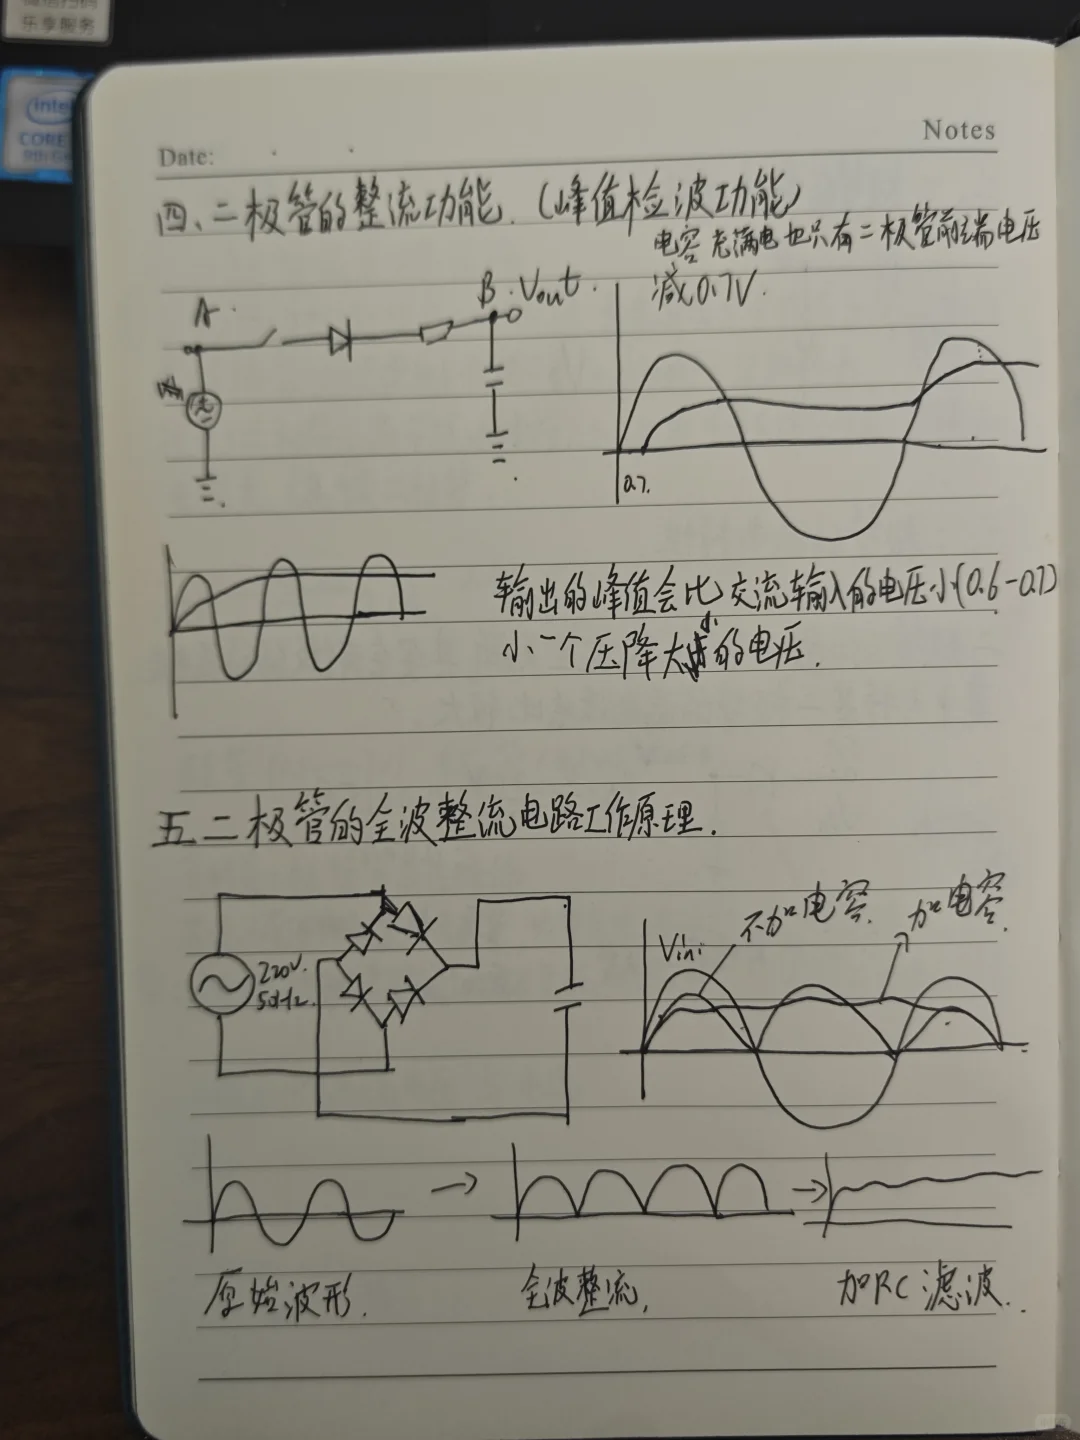 微信扫码
乐享服务
intel
CORE
Notes
Date:
四、二极管的整流功能.(峰值检波功能)
电容充满电也只有二极管前端电压
减0.7V.
A.
B. Vout.
0.7.
输出的峰值会比交流输入的电压小(0.6-0.7)
小一个压降大小的电压.
五 二极管的全波整流电路工作原理.
不加电容.
加电容.
Vin:
220V.
50Hz.
原始波形.
全波整流.
加RC滤波.